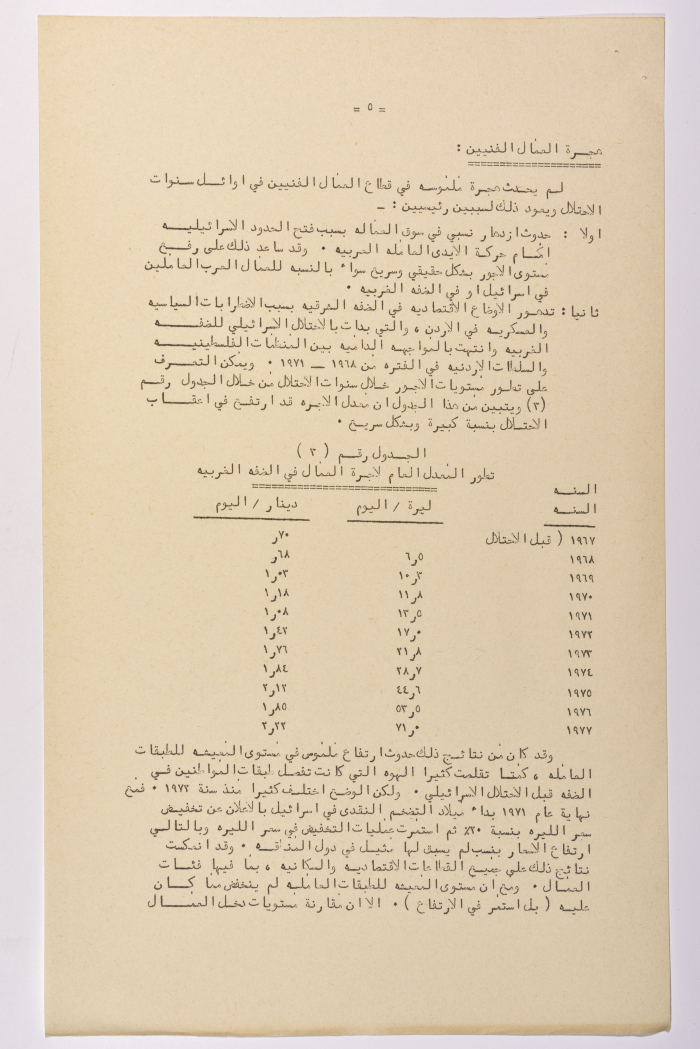 = ٥ =
هجرة العمال الفنيين :
لم يحدث هجرة ملموسه في قطاع العمال الفنيين في اوائل سنوات
الاحتلال ويعود ذلك لسببين رئيسيين : ـ
اولا : حدوث ازدهار نسبي في سوق العماله بسبب فتح الحدود الاسرائيليه
امام حركة الايدى العامله العربيه ٠ وقد ساعد ذلك على رفع
مستوى الاجور بشكل حقيقي وسريع سواء بالنسبه للعمال العرب العاملين
في اسرائيل او في الضفه الغربيه ٠
ثانيا : تدهور الاوضاع الاقتصاديه في الضفه الشرقيه بسبب الاضطرابات السياسيه
والعسكريه في الاردن ، والتي بدات بالاحتلال الاسرائيلي للضفه
الغربيه وانتهت بالمواجهه الداميه بين المنظمات الفلسطينيه
والسلطات الاردنيه في الفتره من ١٩٦٨ ــ ١٩٧١ ٠ ويمكن التعرف
على تطور مستويات الاجور خلال سنوات الاحتلال من خلال الجدول رقم
(٣) ويتبين من هذا الجدول ان معدل الاجره قد ارتفع في اعقاب
الاحتلال بنسبة كبيرة وبشكل سريع ٠
الجدول رقم ( ٣ )
تطور المعدل العام لاجرة العمال في الضفه الغربيه
السنه
السنه ليرة / اليوم دينار / اليوم
١٩٦٧ ( قبل الاحتلال ٧٠ر
١٩٦٨ ٥ر٦ ٦٨ر
١٩٦٩ ٣ر١٠ ٠٣ر١
١٩٧٠ ٨ر١١ ١٨ر١
١٩٧١ ٥ر١٣ ٠٨ر١
١٩٧٢ ٠ر١٧ ٤٢ر١
١٩٧٣ ٨ر٢١ ٧٦ر١
١٩٧٤ ٧ر٢٨ ٨٤ر١
١٩٧٥ ٦ر٤٤ ١٢ر٢
١٩٧٦ ٥ر٥٣ ٨٥ر١
١٩٧٧ ٠ر٧١ ٢٢ر٢
وقد كان من نتائج ذلك حدوث ارتفاع ملموس في مستوى المعيشه للطبقات
العامله ، كما تقلصت كثيرا الهوه التي كانت تفصل طبقات المواطنين في
الضفه قبل الاحتلال الاسرائيلي ٠ ولكن الوضع اختلف كثيرا منذ سنة ١٩٧٢ ٠ فمع
نهاية عام ١٩٧١ بداء ميلاد التضخم النقدى في اسرائيل بالاعلان عن تخفيض
سعر الليره بنسبة ٢٠٪ ثم استمرت عمليات التخفيض في سعر الليره وبالتالي
ارتفاع الاسعار بنسب لم يسبق لها مثيل في دول المنطقه ٠ وقد انعكست
نتائج ذلك على جميع القطاعات الاقتصاديه والسكانيه ، بما فيها فئات
العمال ٠ ومع ان مستوى المعيشه للطبقات العامله لم ينخفض مما كان
عليه ( بل استمر في الارتفاع ) ٠ الا ان مقارنة مستويات دخل العمال